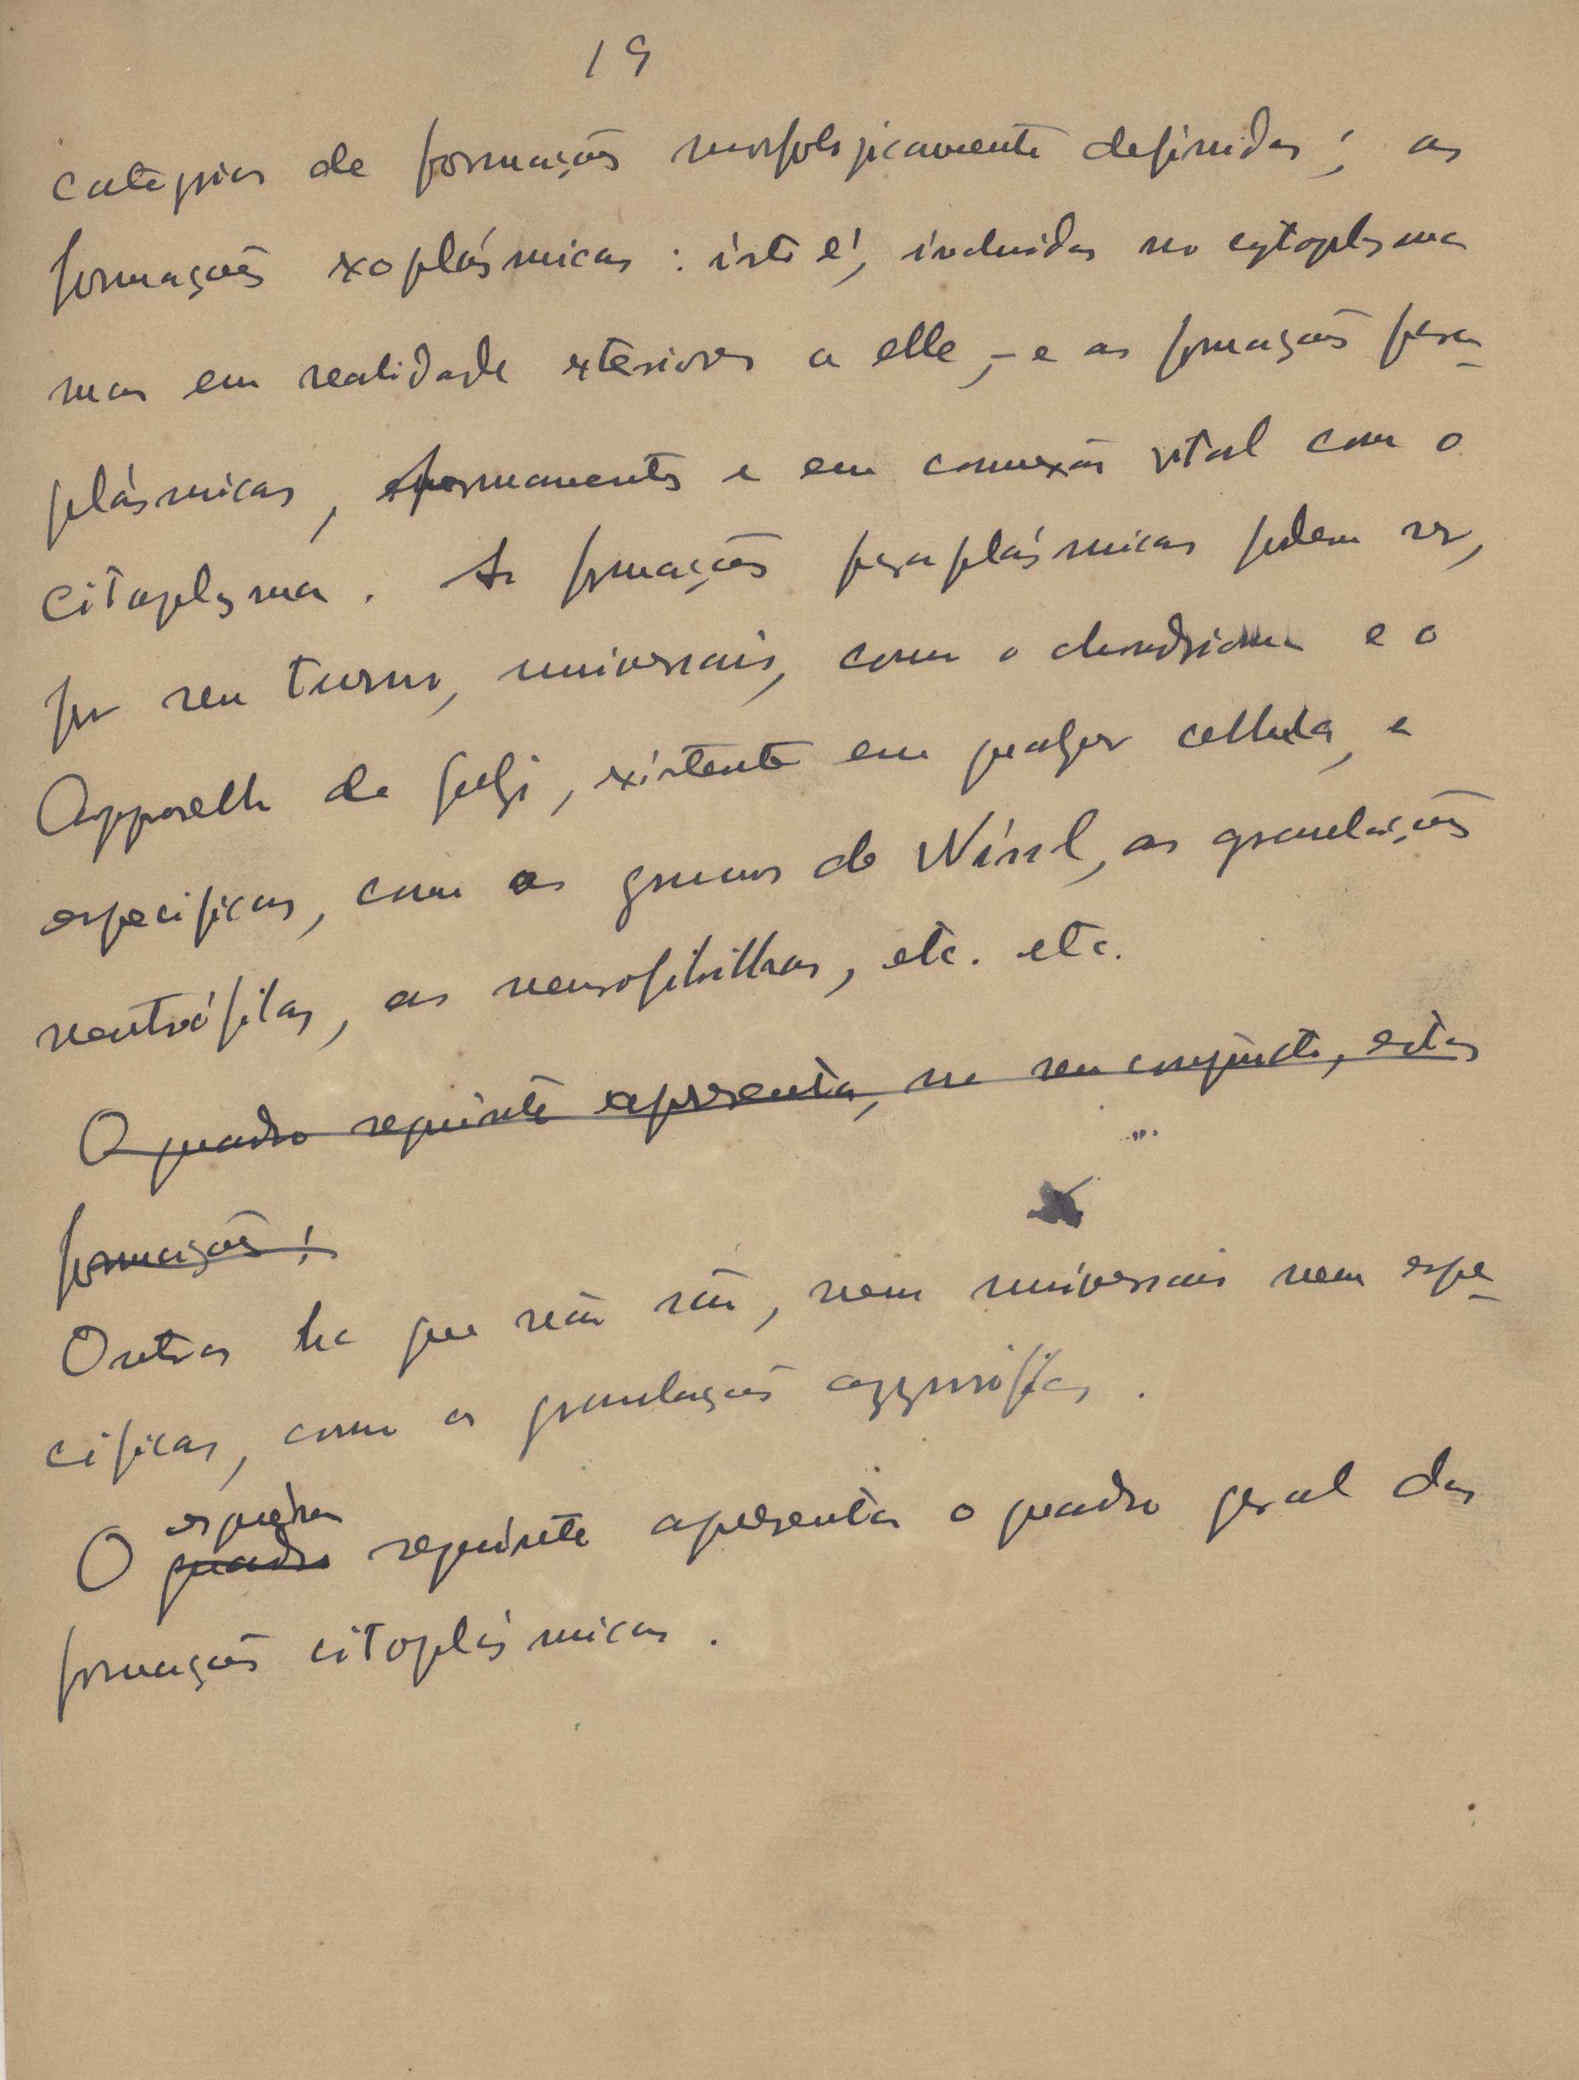 19
categorias de formações morfologicamente definidas; as
formações exoplásmicas: isto é, incluidas no cytoplasma
mas em realidade exteriores a elle, – e as formações para-
plásmicas, permanentes e em connexão vital com o
citoplasma. As formações paraplásmicas podem ser,
por seu turno, universais, como o chondrioma e o
Apparelho de Golgi, existente em qualquer cellula, e
especificas, como os grumos de Nissl, as granulações
neutrófilas, as neurofibrillas, etc. etc.
O quadro seguinte apresenta, no seu conjuncto, estas
formações:
Outras ha que não são, nem universais nem espe-
cificas, como as granulações azurófilas.
esquema
O quadro seguinte apresenta o quadro geral das
formações citoplásmicas.